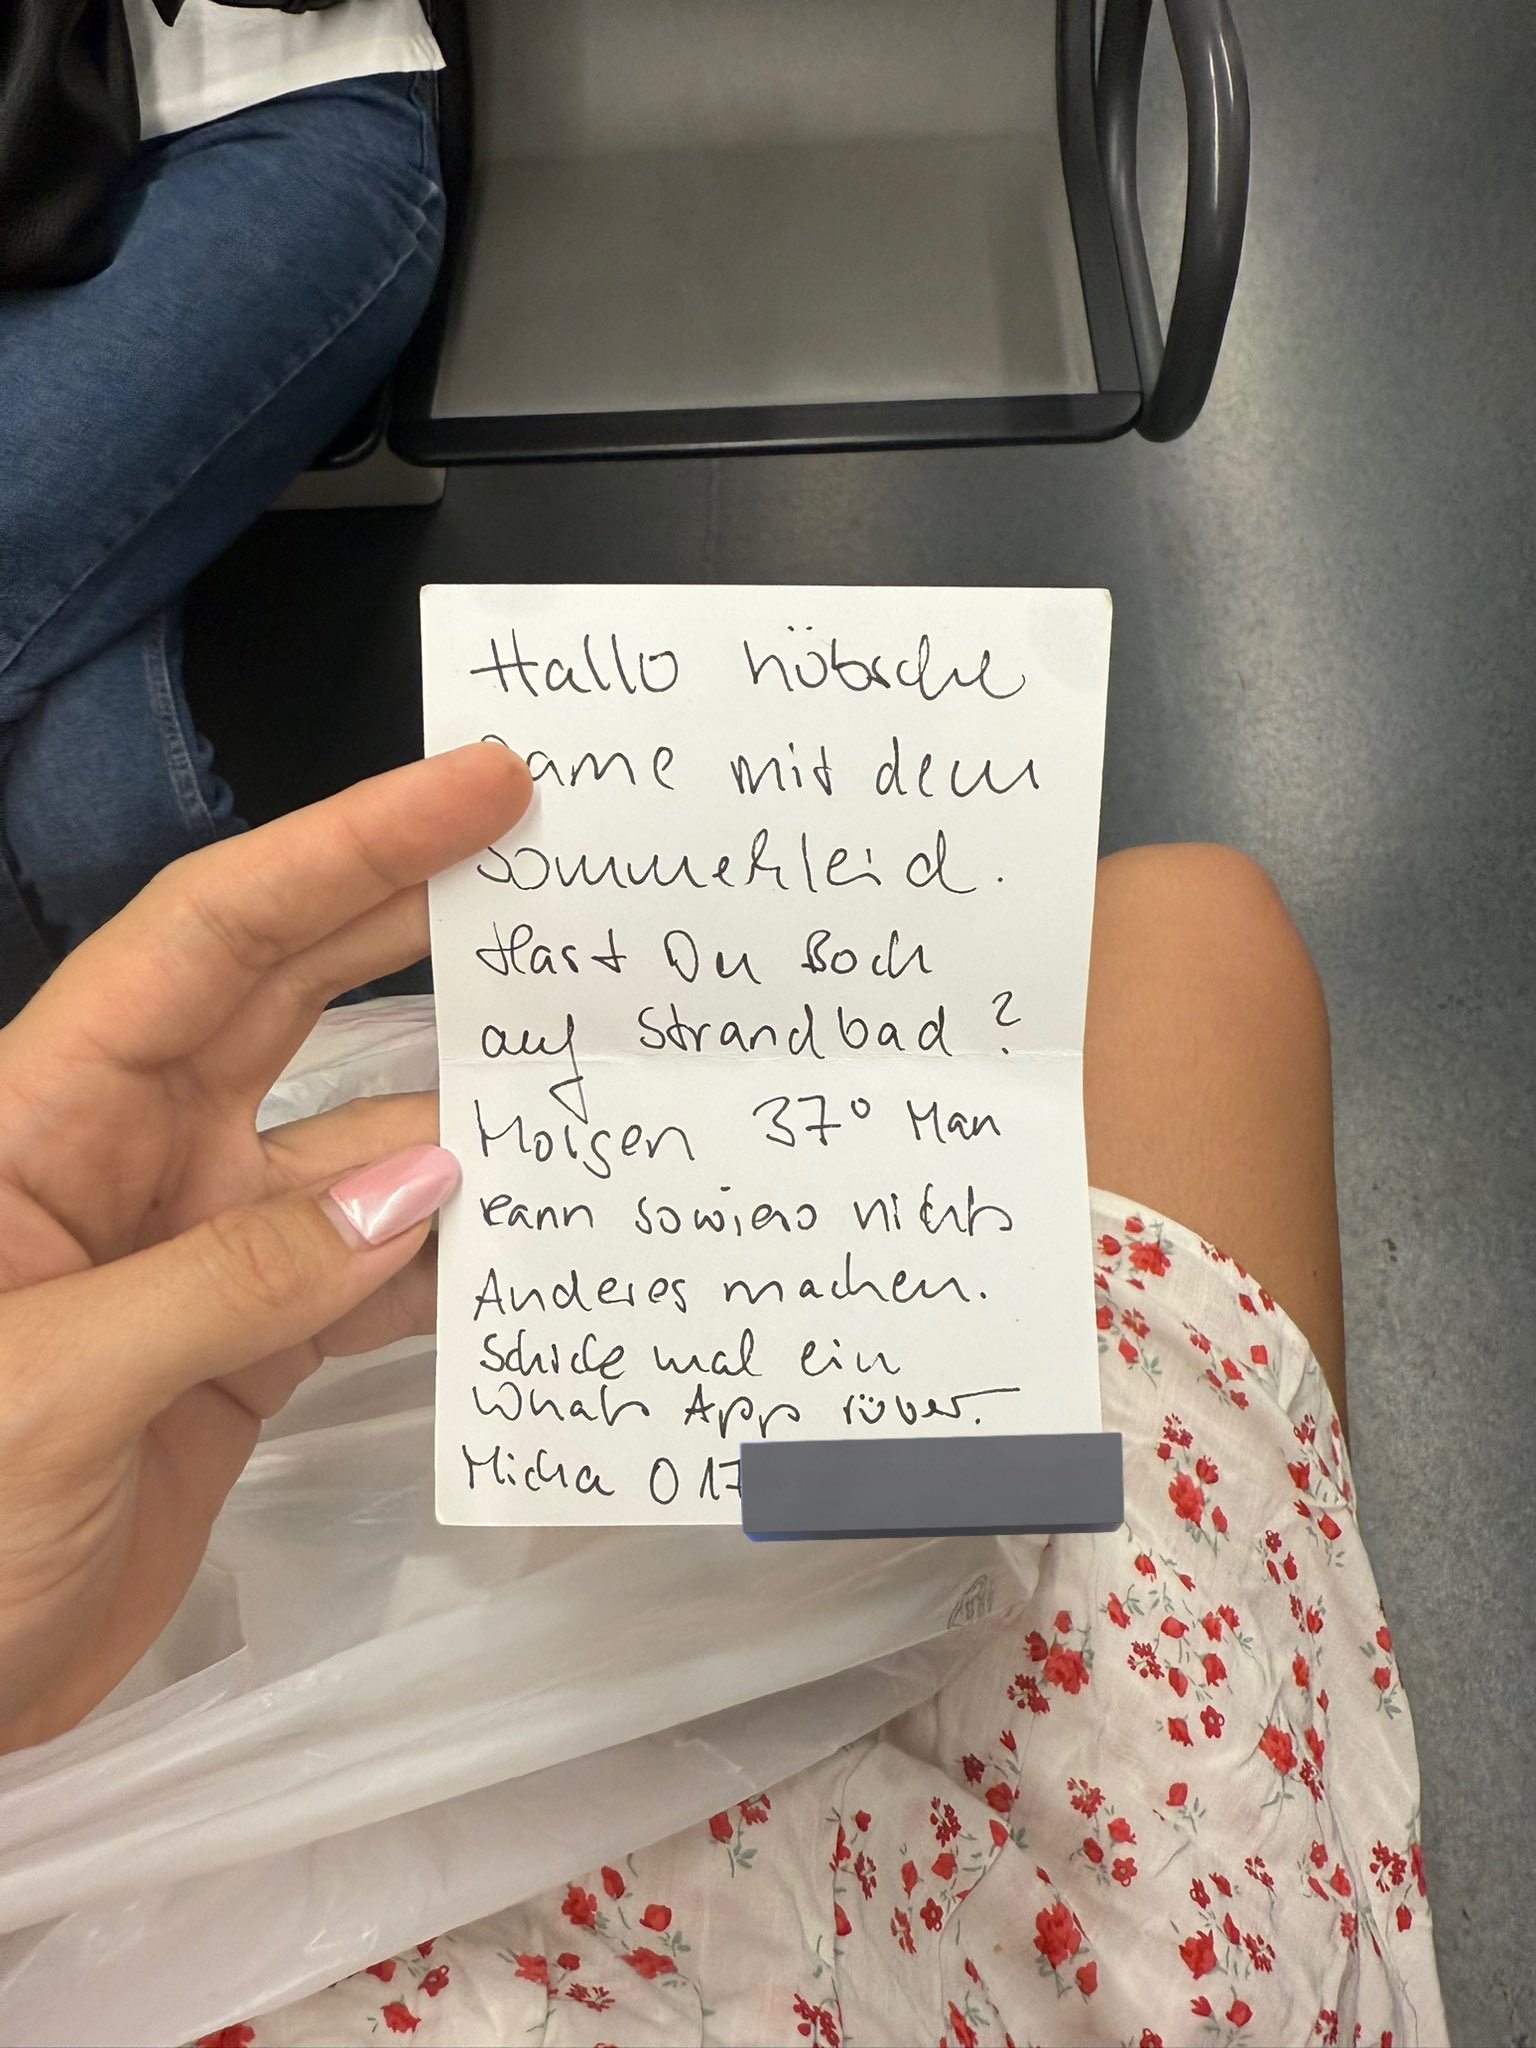 Hallo hübsche
Dame mit dem
Sommerkleid.
Hast Du Bock
auf Strandbad?
Morgen 37° Man
kann sowieso nichts
Anderes machen.
Schicke mal ein
Whats App rüber.
Micha 017